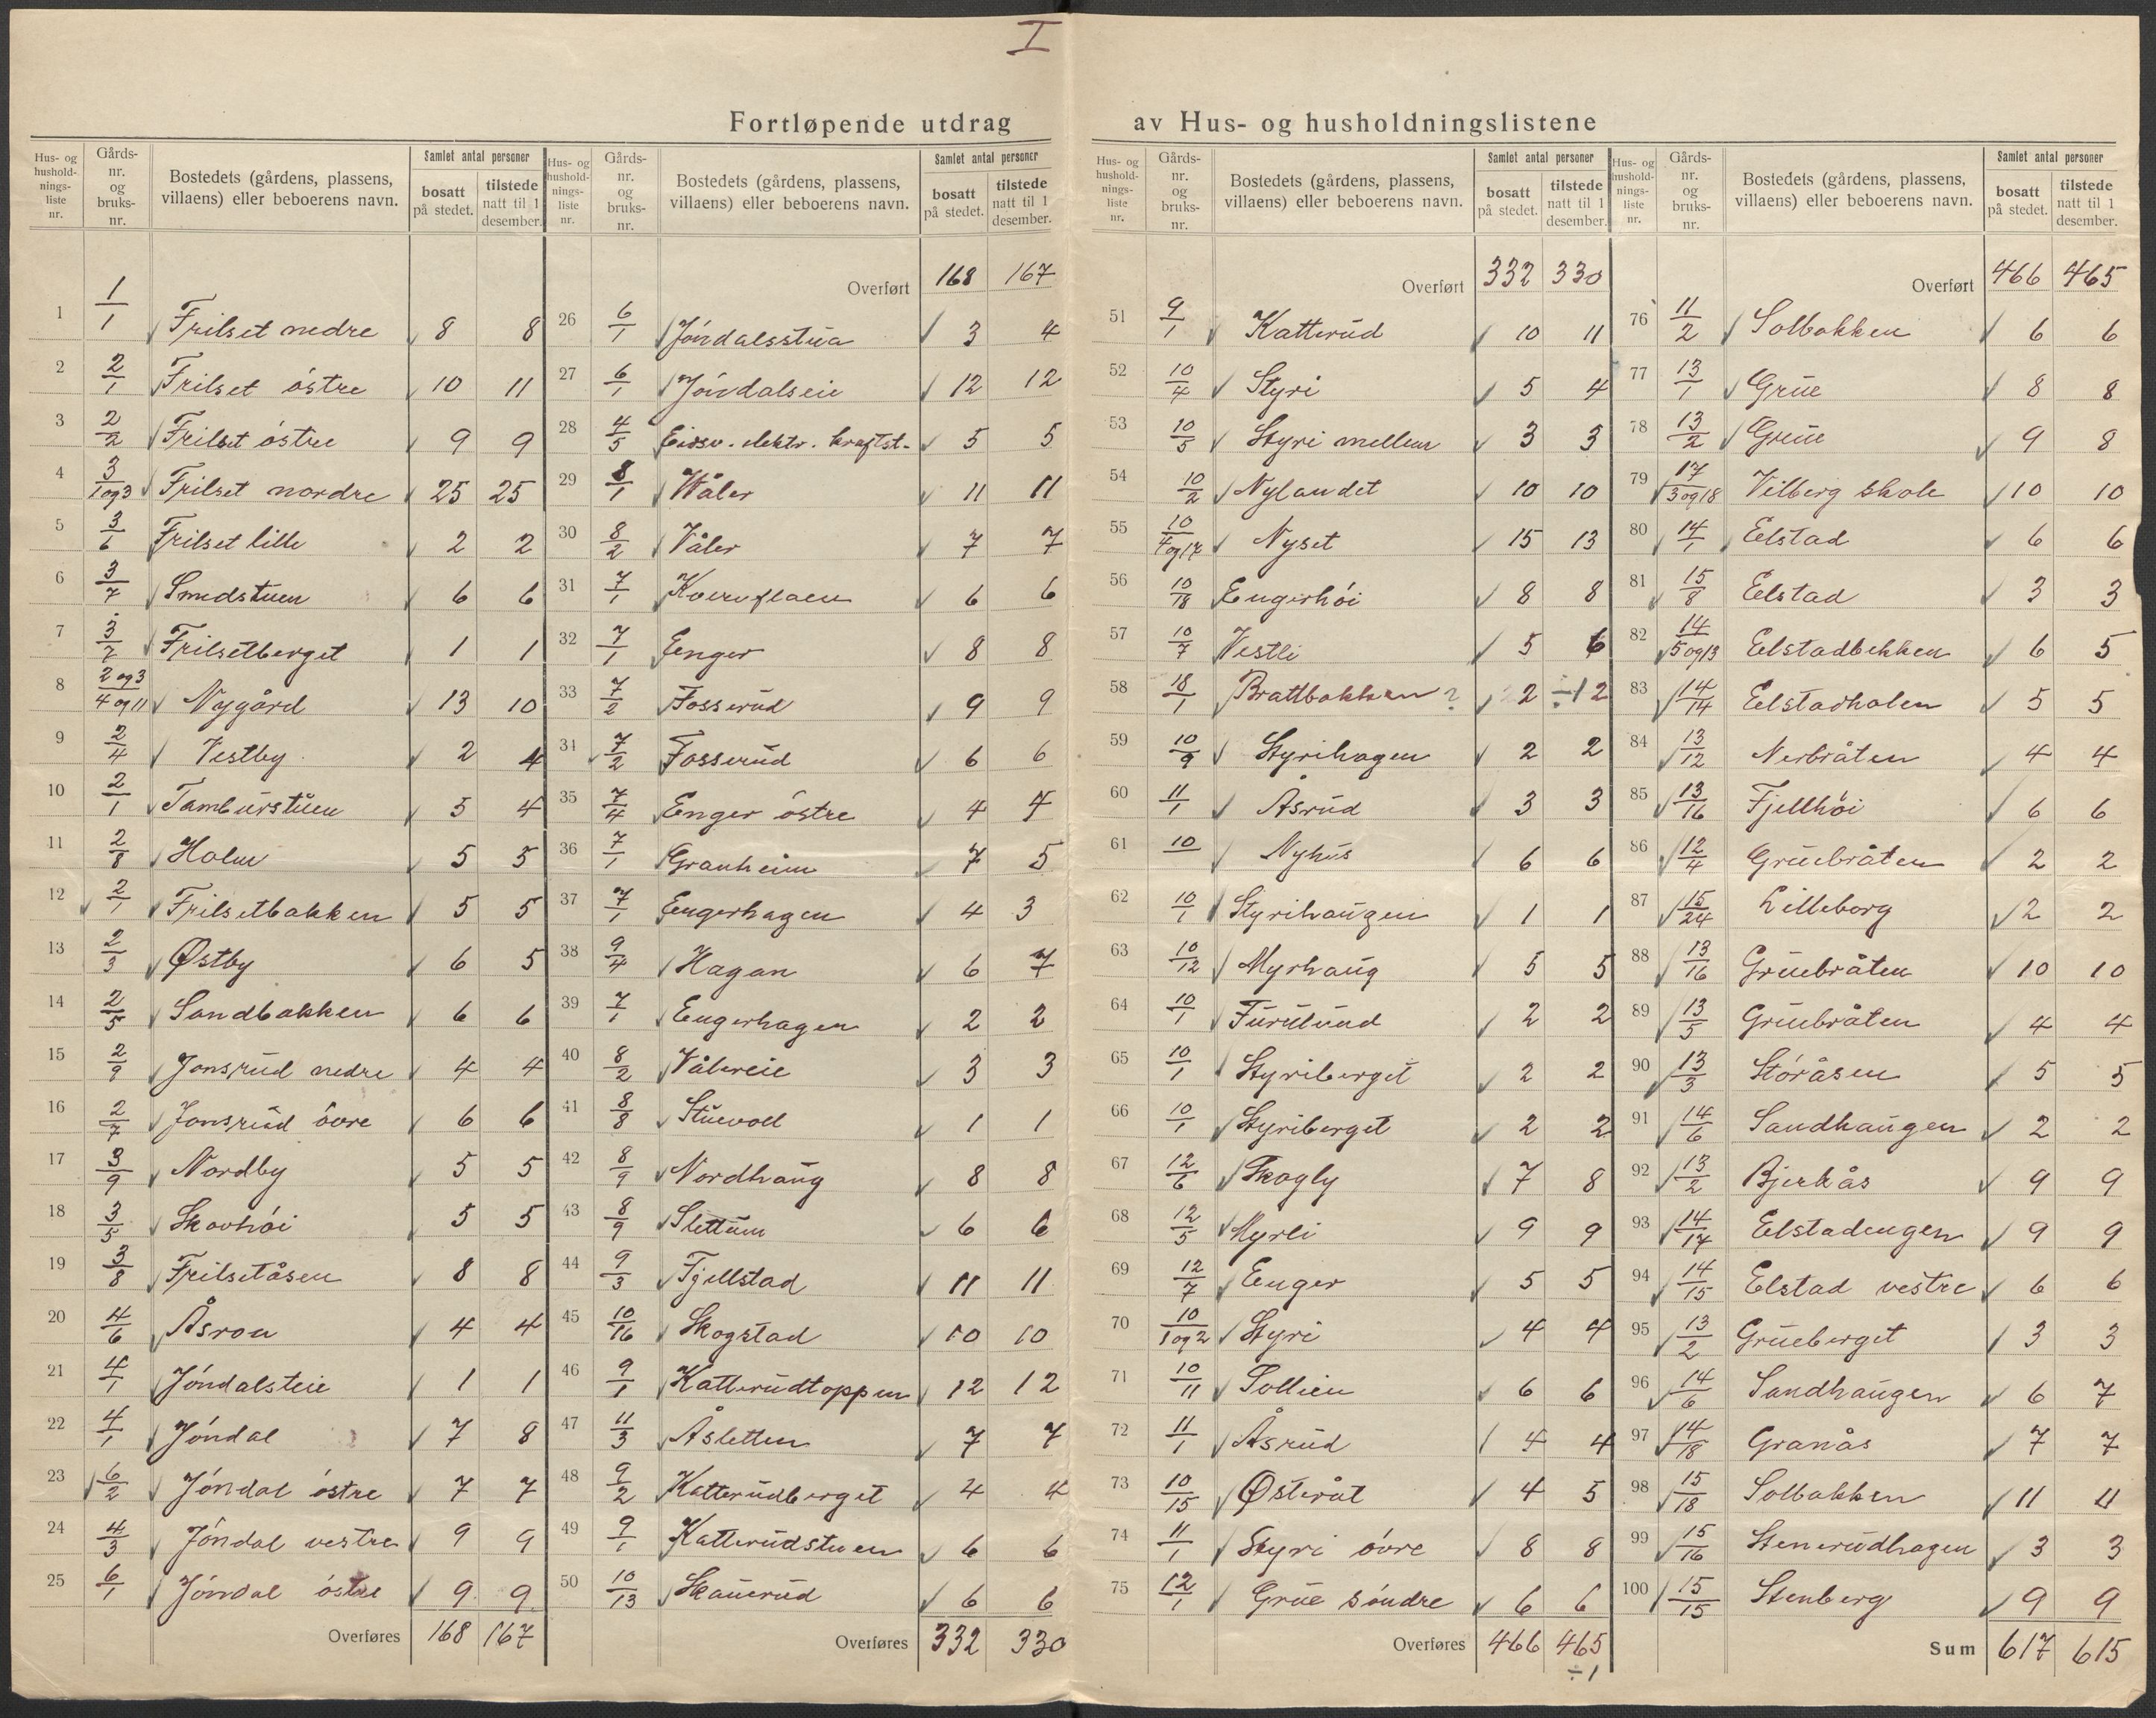 I
Fortløpende utdrag av Hus- og husholdningslistene
Hus- og husholdnings-liste nr. Gårds-nr. og bruks-nr. Bostedets (gårdens, plassens, villaens) eller beboerens navn. Samlet antal personer bosatt på stedet. tilstede natt til 1 desember.
1 1/1 Frilset nedre 8 8
2 2/1 Frilset östre 10 11
3 2/2 Frilset östre 9 9
4 3/1og3 Frilset nordre 25 25
5 3/6 Frilset lille 2 2
6 3/7 Smedstuen 6 6
7 3/7 Frilsetberget 1 1
8 2og3/4og11 Nygård 13 10
9 2/4 Vestby 2 4
10 2/1 Tamburstuen 5 4
11 2/8 Holm 5 5
12 2/1 Frilsetbakken 5 5
13 2/3 Østby 6 5
14 2/5 Sandbakken 6 6
15 2/9 Jonsrud nedre 4 4
16 2/7 Jonsrud övre 6 6
17 3/9 Nordby 5 5
18 3/5 Skovhöi 5 5
19 3/8 Frilsetåsen 8 8
20 4/6 Åsrou 4 4
21 4/1 Jöndalsteie 1 1
22 4/1 Jöndal 7 8
23 6/2 Jöndal östre 7 7
24 4/3 Jöndal vestre 9 9
25 6/1 Jöndal östre 9 9
Overføres 168 167
Hus- og husholdnings-liste nr. Gårds-nr. og bruks-nr. Bostedets (gårdens, plassens, villaens) eller beboerens navn. Samlet antal personer bosatt på stedet. tilstede natt til 1 desember.
Overført 168 167
26 6/1 Jöndalsstua 3 4
27 6/1 Jöndalseie 12 12
28 4/5 Eidsv. elektr. kraftst. 5 5
29 8/1 Våler 11 11
30 8/2 Våler 7 7
31 7/1 Kvernflaen 6 6
32 7/1 Enger 8 8
33 7/2 Fosserud 9 9
31 7/2 Fosserud 6 6
35 7/4 Enger östre 4 4
36 7/1 Granheim 7 5
37 7/1 Engerhagen 4 3
38 9/4 Hagan 6 7
39 7/1 Engerhagen 2 2
40 8/2 Vålereie 3 3
41 8/8 Stuevoll 1 1
42 8/9 Nordhaug 8 8
43 8/9 Slettum 6 6
44 9/3 Fjellstad 11 11
45 10/16 Skogstad 10 10
46 9/1 Katterudtoppen 12 12
47 11/3 Åsletten 7 7
48 9/2 Katterudberget 4 4
49 9/1 Katterudstuen 6 6
50 10/13 Skauerud 6 6
Overføres 332 330
Hus- og husholdnings-liste nr. Gårds-nr. og bruks-nr. Bostedets (gårdens, plassens, villaens) eller beboerens navn. Samlet antal personer bosatt på stedet. tilstede natt til 1 desember.
Overført 332 330
51 9/1 Katterud 10 11
52 10/4 Styri 5 4
53 10/5 Styri mellem 3 3
54 10/2 Nylandet 10 10
55 10/4og17 Nyset 15 13
56 10/18 Engerhöi 8 8
57 10/7 Vestli 5 6
58 18/1 Brattbakken? 2 ÷1 2
59 10/9 Styrihagen 2 2
60 11/1 Åsrud 3 3
61 10 Nyhus 6 6
62 10/1 Styrihaugen 1 1
63 10/12 Myrhaug 5 5
64 10/1 Furulund 2 2
65 10/1 Styriberget 2 2
66 10/1 Styriberget 2 2
67 12/6 Skogly 7 8
68 12/5 Myrli 9 9
69 12/7 Enger 5 5
70 10/1og2 Styri 4 4
71 10/11 Sollien 6 6
72 11/1 Åsrud 4 4
73 10/15 Østeråt 4 5
74 11/1 Styri övre 8 8
75 12/1 Grue söndre 6 6
Overføres 466 465
÷1
Hus- og husholdnings-liste nr. Gårds-nr. og bruks-nr. Bostedets (gårdens, plassens, villaens) eller beboerens navn. Samlet antal personer bosatt på stedet. tilstede natt til 1 desember.
Overført 466 465
76 11/2 Solbakken 6 6
77 13/1 Grue 8 8
78 13/2 Grue 9 8
79 17/3og18 Vilberg skole 10 10
80 14/1 Eelstad 6 6
81 15/8 Eelstad 3 3
82 14/5og13 Eelstadbekken 6 5
83 14/14 Eelstadholen 5 5
84 13/12 Nerbråten 4 4
85 13/16 Fjellhöi 6 6
86 12/4 Gruebråten 2 2
87 15/24 Lilleborg 2 2
88 13/16 Gruebråten 10 10
89 13/5 Gruebråten 4 4
90 13/3 Storåsen 5 5
91 14/6 Sandhaugen 2 2
92 13/2 Bjerkås 9 9
93 14/17 Eelstadengen 9 9
94 14/15 Eelstad vestre 6 6
95 13/2 Grueberget 3 3
96 14/6 Sandhaugen 6 7
97 14/18 Granås 7 7
98 15/18 Solbakken 11 11
99 15/16 Stenerudhagen 3 3
100 15/15 Stenberg 9 9
Sum 617 615